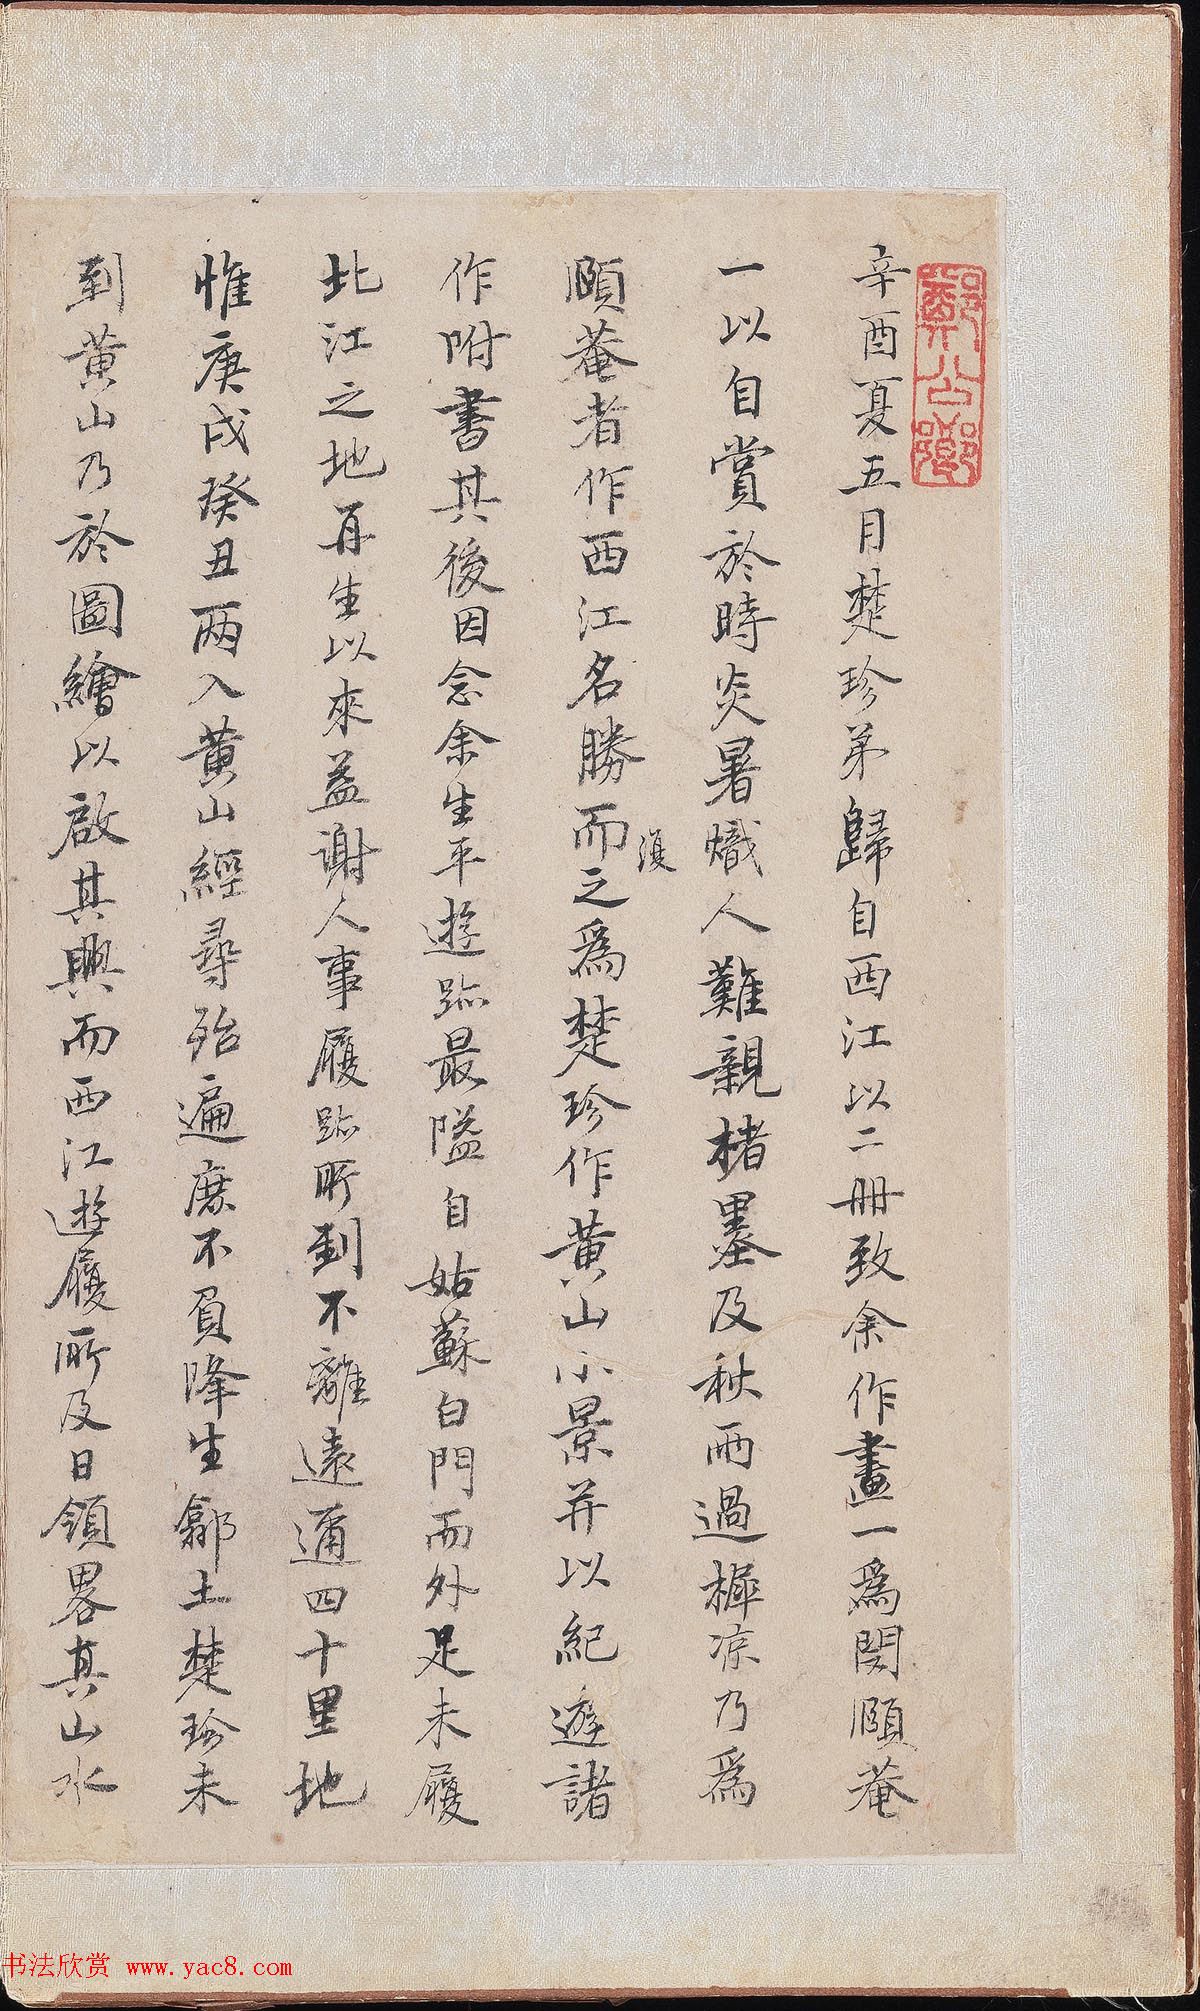 辛酉夏五月楚珍弟歸自西江以二冊致余作畫一爲閔頤菴
一以自賞於時炎暑熾人難親楮墨及秋雨過樨凉乃爲
頤菴者作西江名勝而之爲楚珍作黄山小景并以紀遊諸
復
作附書其後因念余生平遊跡最隘自姑蘇白門而外足未履
北江之地再生以來益謝人事履跡所到不離遠邇四十里地
惟庚戌癸丑兩入黄山經尋殆遍庶不負降生鄉土楚珍未
到黄山乃於圖繪以啟其興而西江遊履所及日領畧其山水
书法欣赏 www.yac8.com